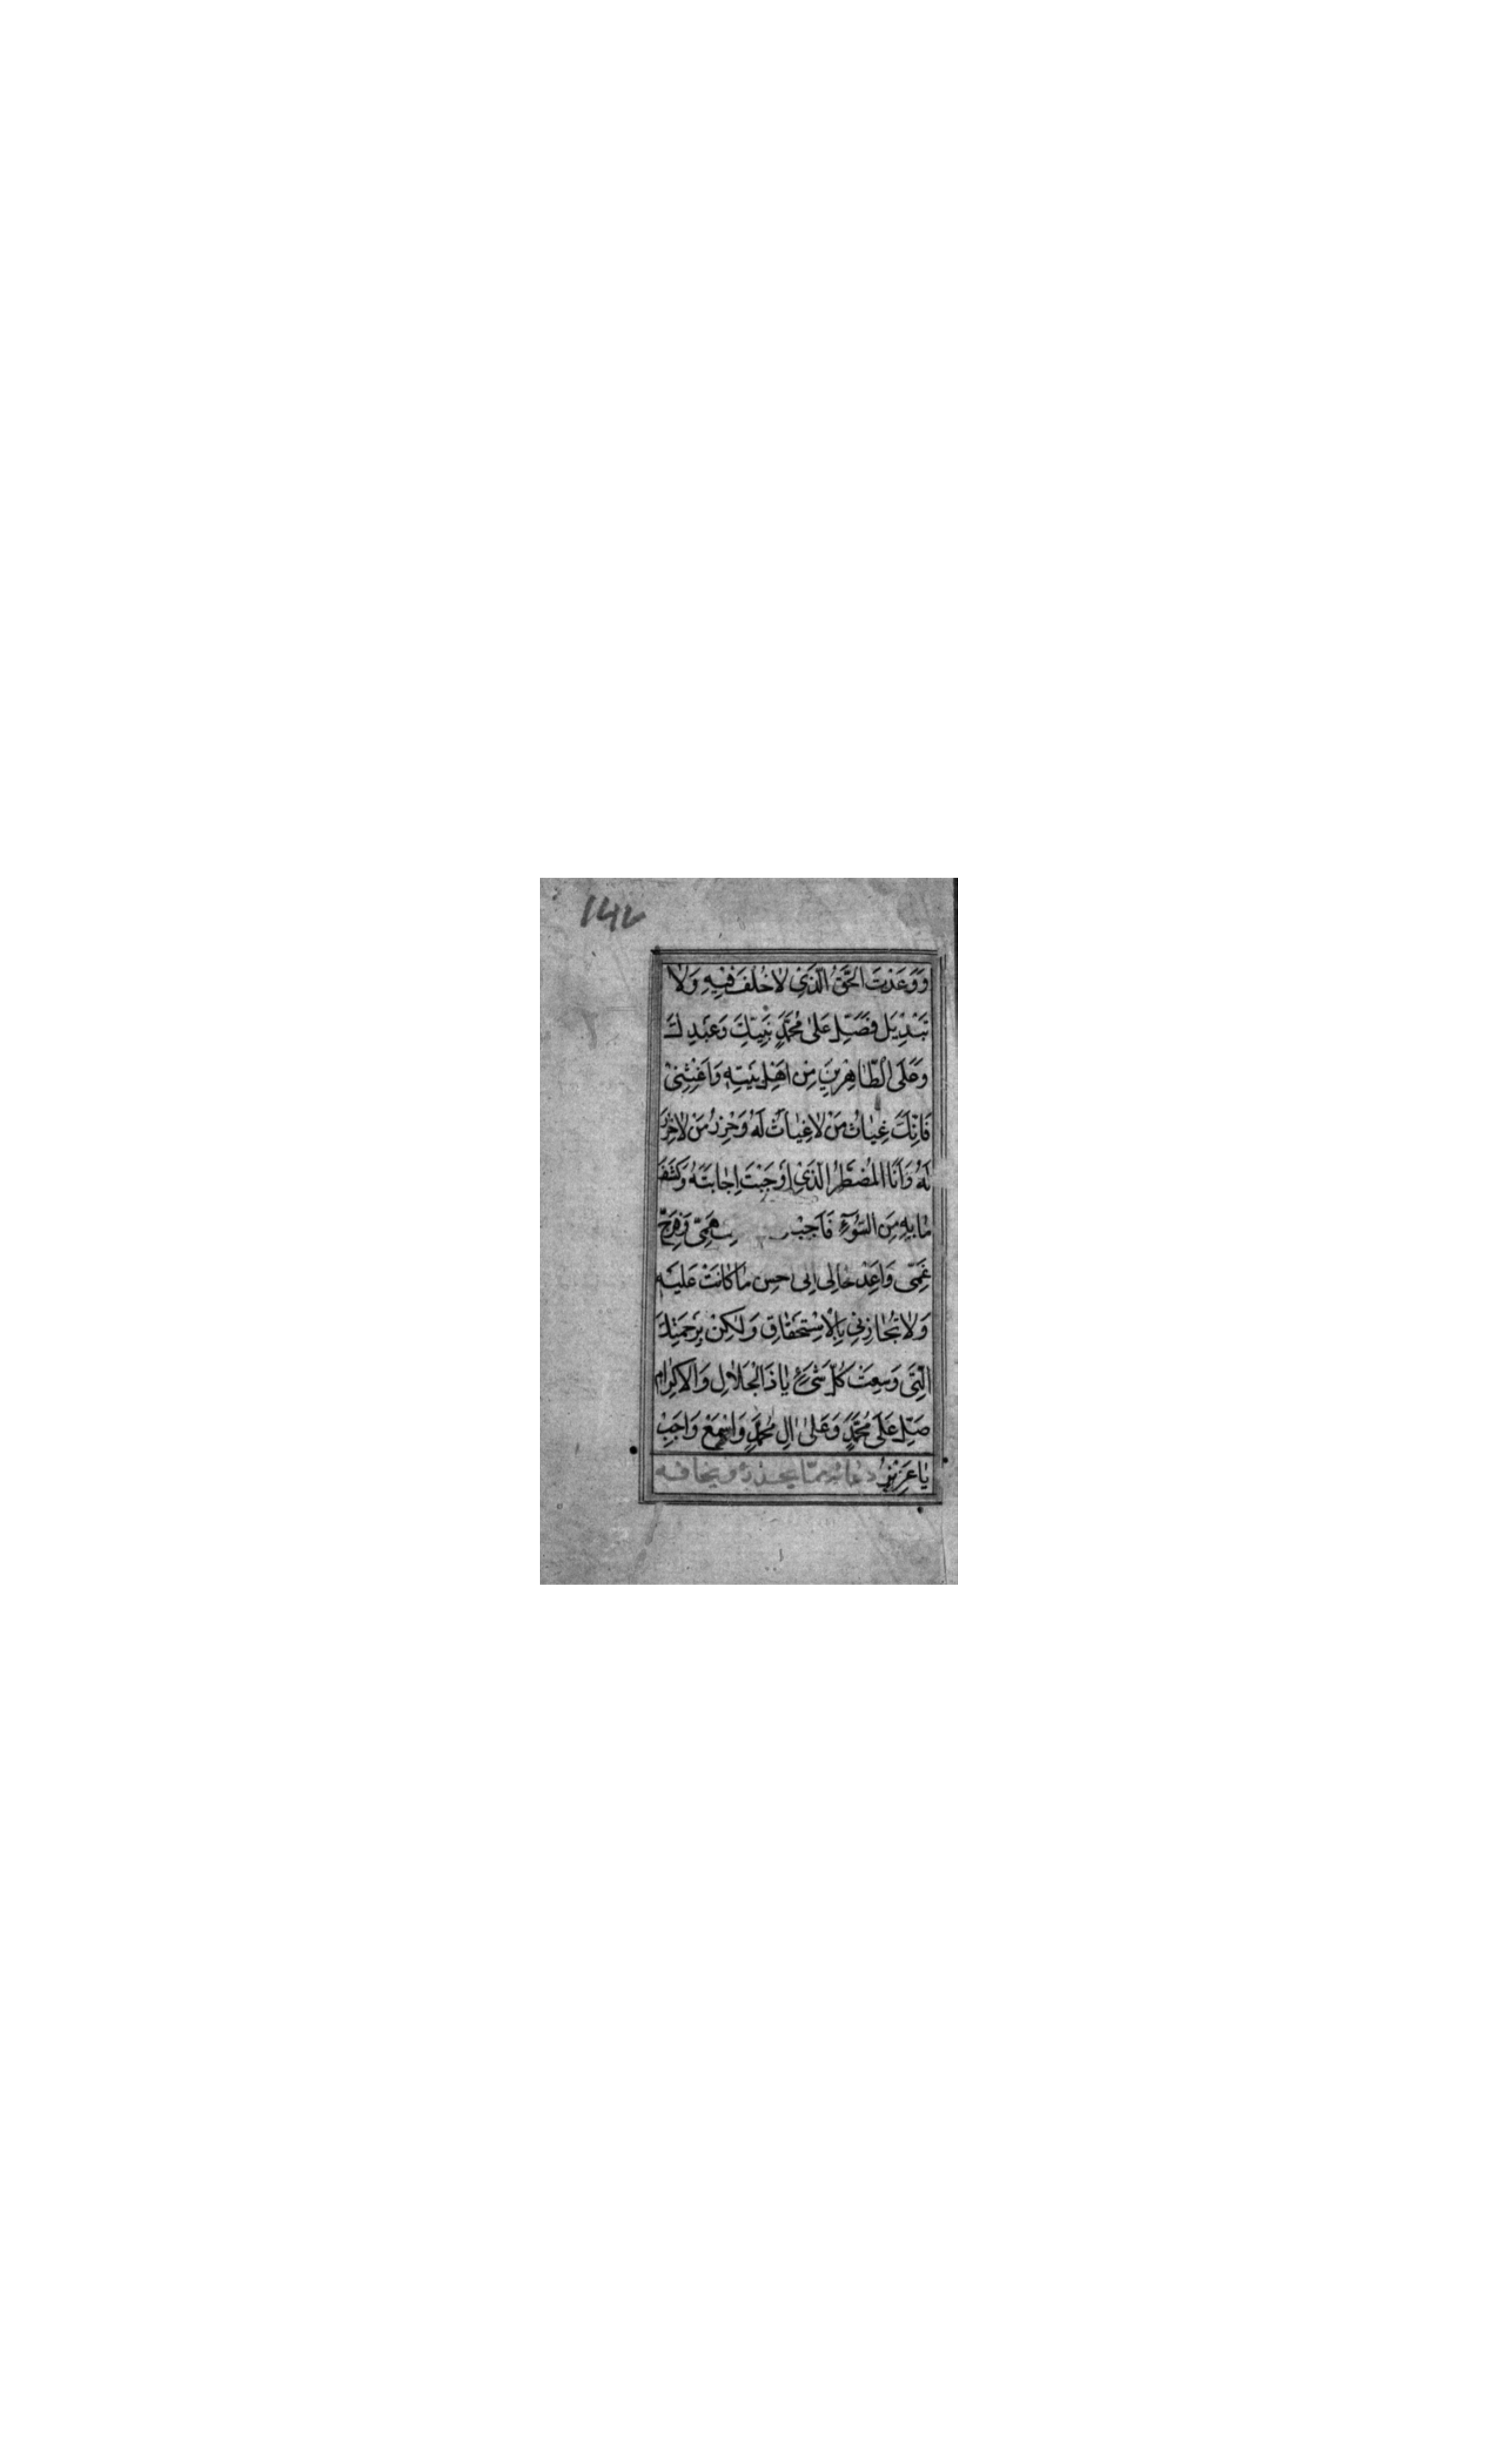 وَوَعَدْتَ الْحَقَّ الَّذِي لَا خُلْفَ فِيهِ وَلَا
تَبْدِيلَ فَصَلِّ عَلَىٰ مُحَمَّدٍ نَبِيِّكَ وَعَبْدِكَ
وَعَلَى الطَّاهِرِينَ مِنْ أَهْلِ بَيْتِهِ وَأَغِثْنِي
فَإِنَّكَ غِيَاثُ مَنْ لَا غِيَاثَ لَهُ وَحِرْزُ مَنْ لَا حِرْزَ
لَهُ وَأَنَا الْمُضْطَرُّ الَّذِي أَوْجَبْتَ إِجَابَتَهُ وَكَشْفَ
مَا بِهِ مِنَ السُّوءِ هَمِّي وَفَرِّجْ
غَمِّي وَأَعِدْ حَالِي إِلَى أَحْسَنِ مَا كَانَتْ عَلَيْهِ
وَلَا تُجَازِنِي بِالْاِسْتِحْقَاقِ وَلَكِنْ بِرَحْمَتِكَ
الَّتِي وَسِعَتْ كُلَّ شَيْءٍ يَا ذَا الْجَلَالِ وَالْإِكْرَامِ
صَلِّ عَلَى مُحَمَّدٍ وَعَلَىٰ آلِ مُحَمَّدٍ وَاسْمَعْ وَأَجِبْ
يَا عَزِيزُ دعائه مما يحذره ويخافه